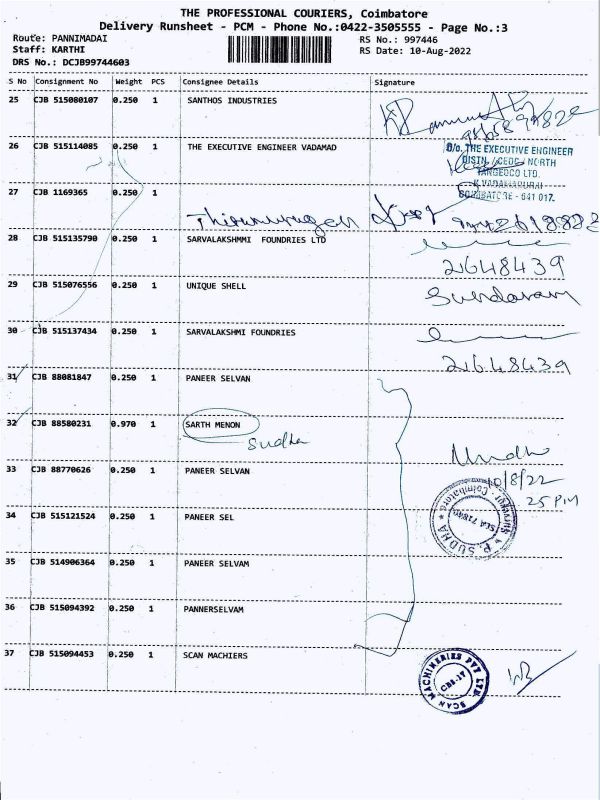 THE PROFESSIONAL COURIERS, Coimbatore
Delivery Runsheet - PCM - Phone No.:0422-3505555 - Page No.:3
Route: PANNIMADAI RS No.: 997446
Staff: KARTHI RS Date: 10-Aug-2022
DRS No.: DCJB99744603
S No Consignment No Weight PCS Consignee Details Signature
25 CJB 515080107 0.250 1 SANTHOS INDUSTRIES
26 CJB 515114085 0.250 1 THE EXECUTIVE ENGINEER VADAMAD
THE EXECUTIVE ENGINEER
NORTH
TANGEDCO LTD.
COIMBATORE - 641 017.
27 CJB 1169365 0.250 1
Thirumurugan
28 CJB 515135790 0.250 1 SARVALAKSHMMI FOUNDRIES LTD
2648439
29 CJB 515076556 0.250 1 UNIQUE SHELL
Sundaram
30 CJB 515137434 0.250 1 SARVALAKSHMI FOUNDRIES
2648439
31 CJB 88081847 0.250 1 PANEER SELVAN
32 CJB 88580231 0.970 1 SARTH MENON
Sudha
33 CJB 88770626 0.250 1 PANEER SELVAN
10/8/22
25 PM
34 CJB 515121524 0.250 1 PANEER SEL
P. SUDHA
35 CJB 514906364 0.250 1 PANEER SELVAM
36 CJB 515094392 0.250 1 PANNERSELVAM
37 CJB 515094453 0.250 1 SCAN MACHIERS
SCAN MACHINERIES PVT LTD.
CBE-17